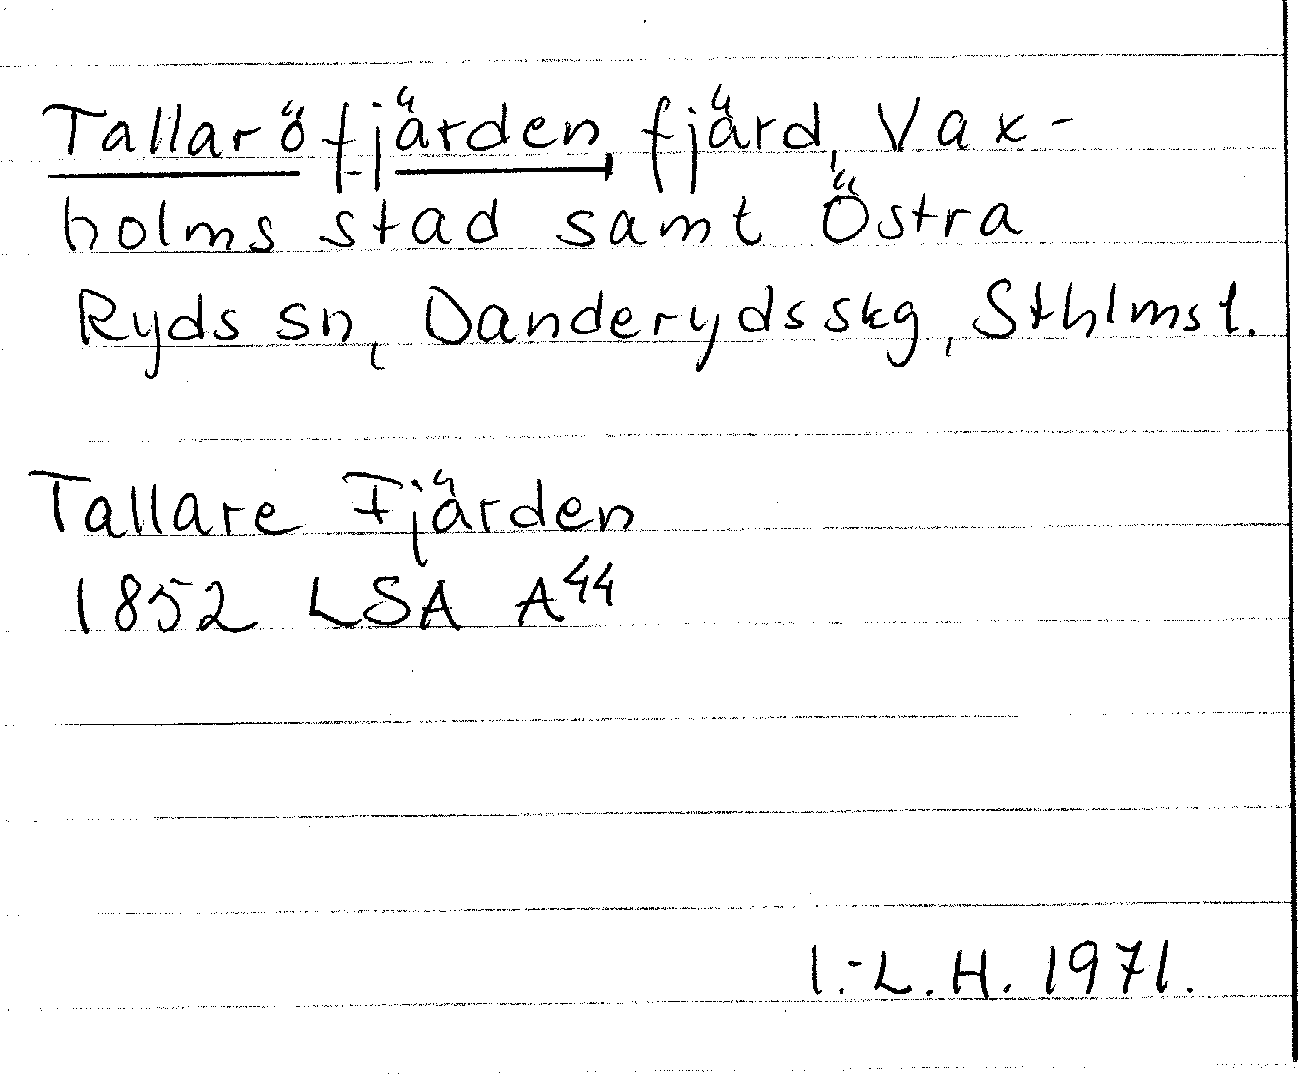 Tallaröfjärden, fjärd, Vax-
holms stad samt Östra
Ryds sn, Danderyds skg, Sthlms l.
Tallare Fjärden
1852 LSA A44
I.-L.H. 1971.